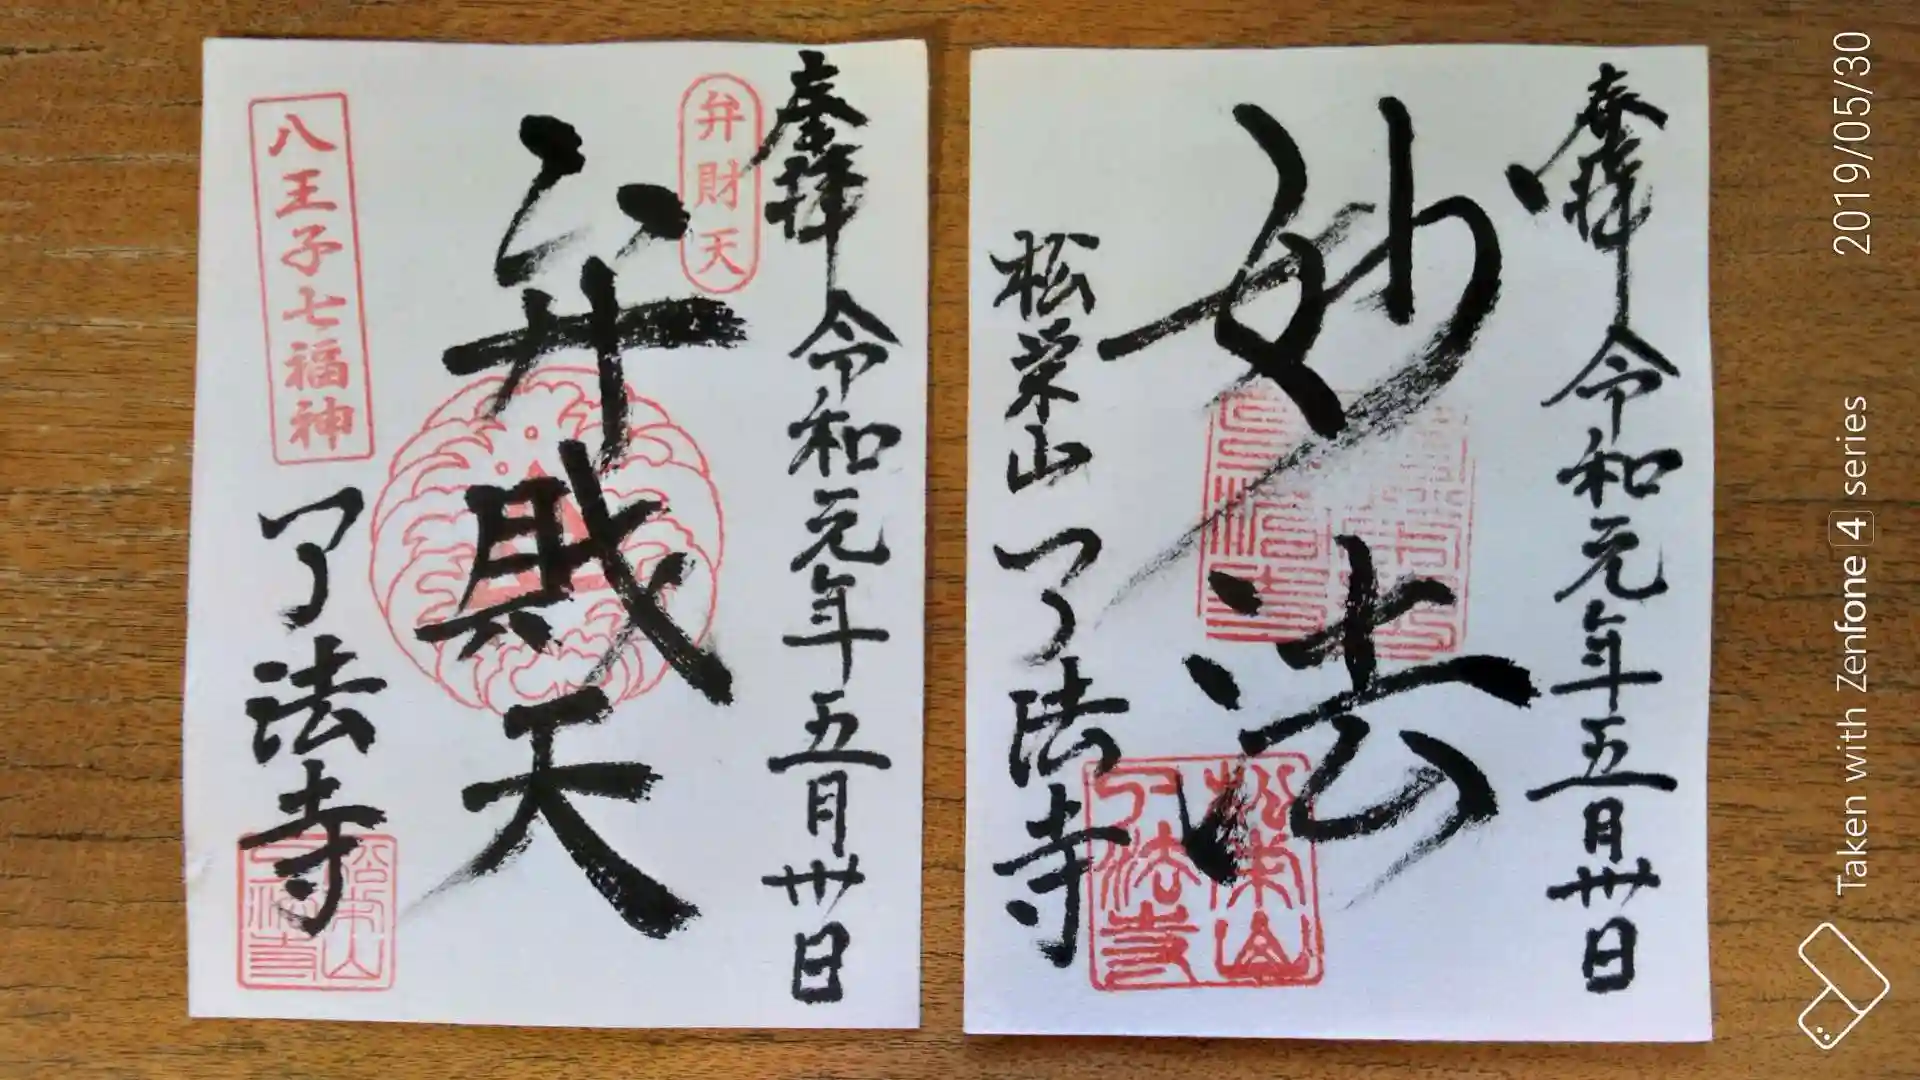 奉拝 令和元年五月卅日
弁財天
弁財天
八王子七福神
了法寺
松栄山
了法寺
奉拝 令和元年五月卅日
妙法
松栄山 了法寺
松栄山
了法寺
2019/05/30
Taken with Zenfone 4 series